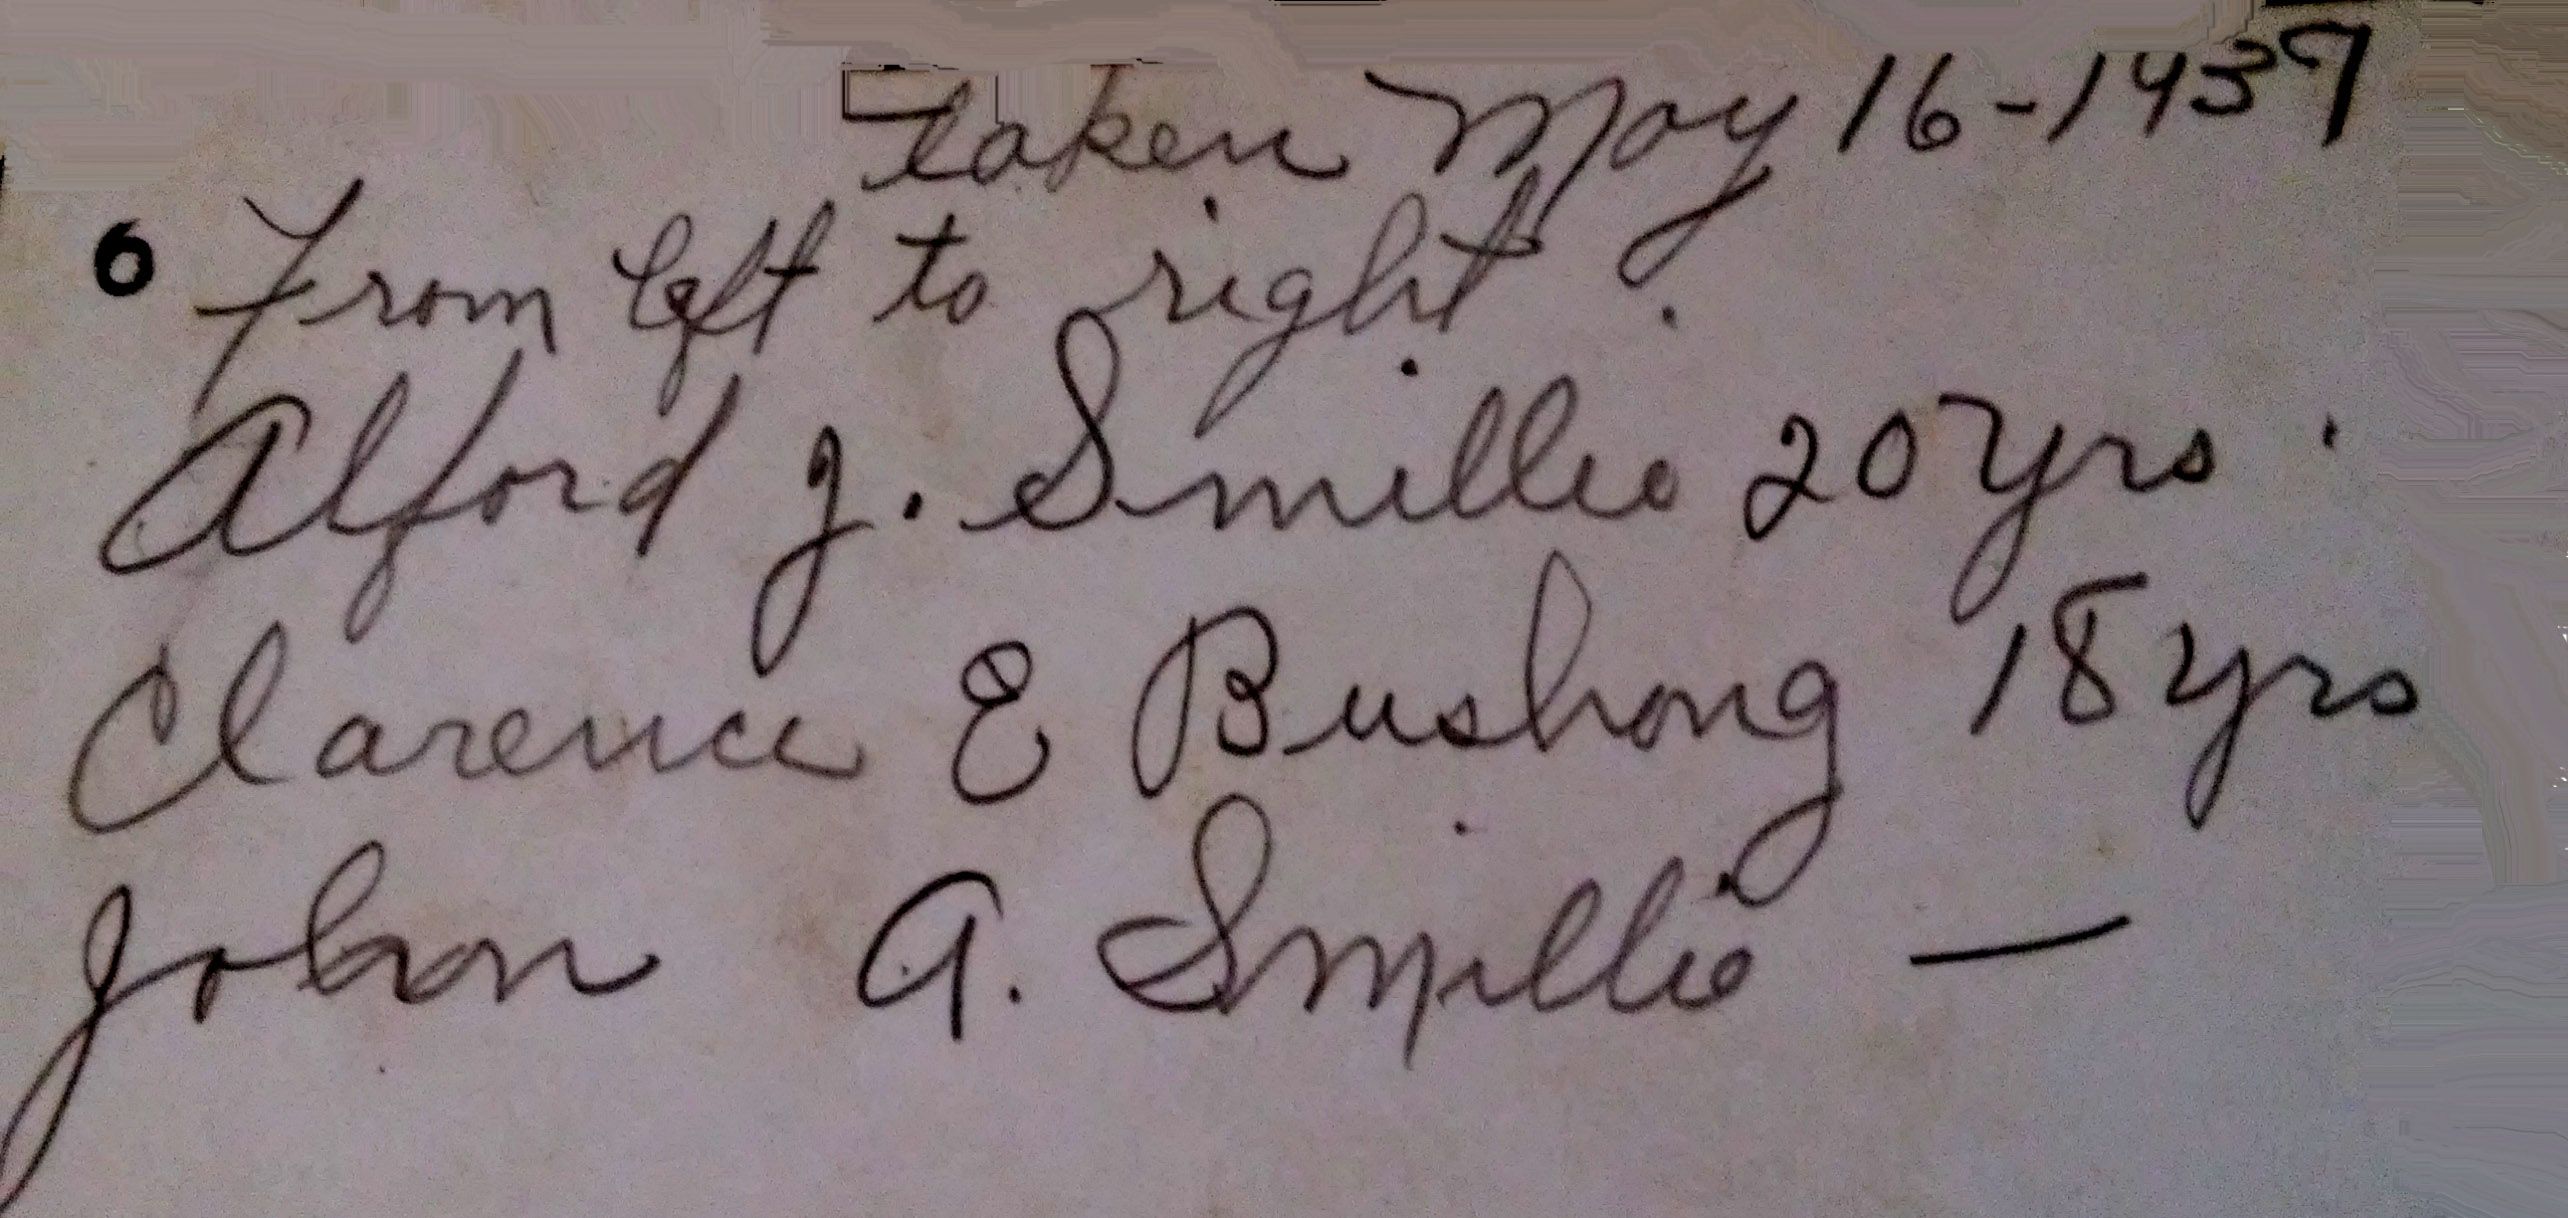 taken May 16-1937
6 From left to right.
Alford J. Smillie 20 yrs.
Clarence E Bushong 18 yrs
John A. Smillie —